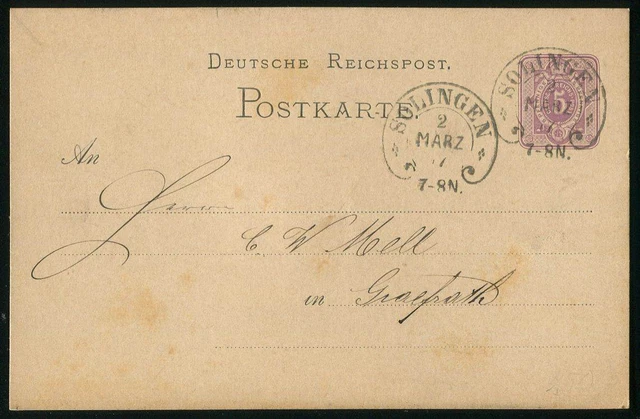 DEUTSCHE REICHSPOST.
POSTKARTE.
SOLINGEN
2
MARZ
7-8N.
SOLINGEN
2
MARZ
7-8N.
5
An
Herrn
C W Mell
in Graefrath